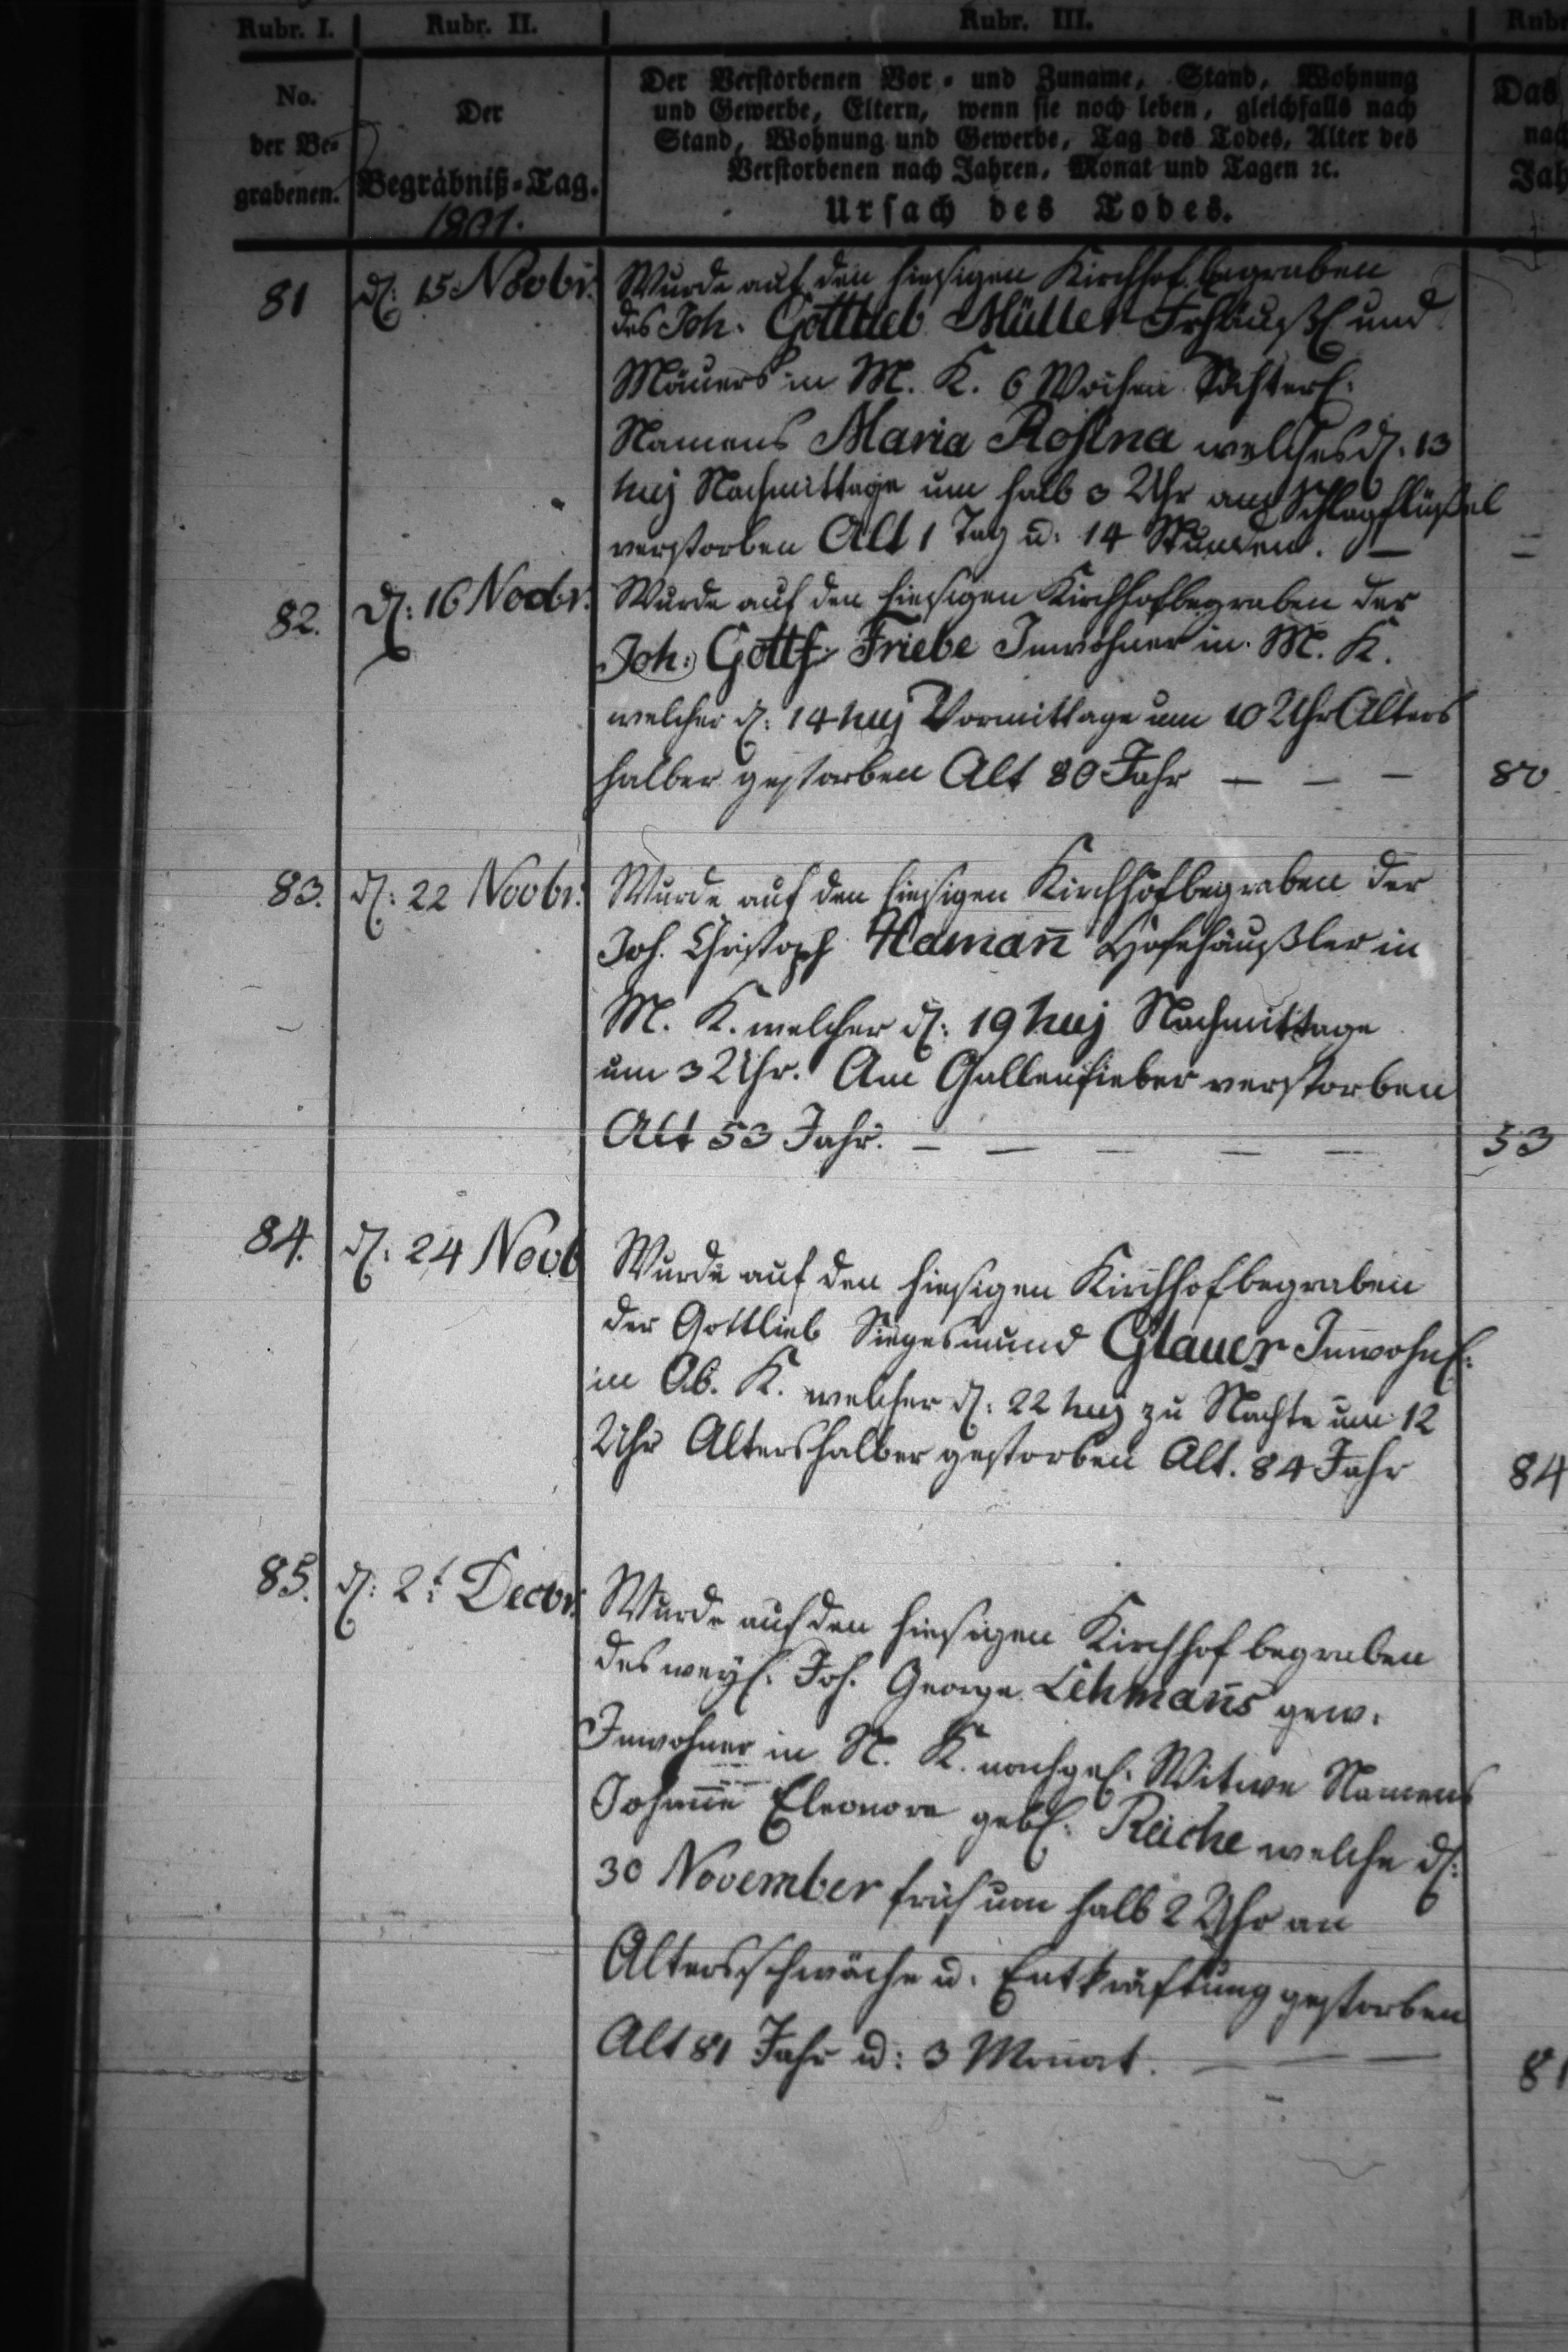 Rubr. I. Rubr. II. Rubr. III. Rub
No.
der Be-
grabenen.
Der
Begräbniß-Tag.
1801.
Der Verstorbenen Vor- und Zuname, Stand, Wohnung
und Gewerbe, Eltern, wenn sie noch leben, gleichfalls nach
Stand, Wohnung und Gewerbe, Tag des Todes, Alter des
Verstorbenen nach Jahren, Monat und Tagen ꝛc.
Ursach des Todes.
Das
nac
Jah
81 d: 15 Novbr. Wurde auf den hiesigen Kirchhof begraben
des Joh. Gottlieb Müller Frhäußl und
Mäuers in M. K. 6 Wochen Töchterl.
Namens Maria Rosina welches d. 13
huj Nachmittage um halb 3 Uhr am Schlagflüßel
verstorben Alt 1 Tag u. 14 Stunden. —
82. d: 16 Novbr. Wurde auf den hiesigen Kirchhof begraben der
Joh: Gottf. Friebe Inwohner in M. K.
welcher d: 14 huj Vormittage um 10 Uhr Alters
halber gestorben Alt 80 Jahr — — — 80
83. d: 22 Novbr. Wurde auf den hiesigen Kirchhof begraben der
Joh. Christoph Hamañ Hofehäußler in
M. K. welcher d: 19 huj Nachmittage
um 3 Uhr. Am Gallenfieber verstorben
Alt 53 Jahr. — — — — — 53
84. d: 24 Novb Wurde auf den hiesigen Kirchhof begraben
der Gottlieb Siegesmund Glauer Innwohn.
in Ob. K. welcher d: 22 huj zu Nachte um 12
Uhr Altershalber gestorben Alt. 84 Jahr 84
85. d: 2t Decbr. Wurde auf den hiesigen Kirchhof begraben
des weyl. Joh. George Lehmañs gew.
Inwohner in N. K. nachgel. Witwe Namens
Johañe Eleonore gebl. Reiche welche d:
30 November früh um halb 2 Uhr an
Altersschwäche u. Entkräftung gestorben
Alt 81 Jahr u: 3 Monat. — — — 81